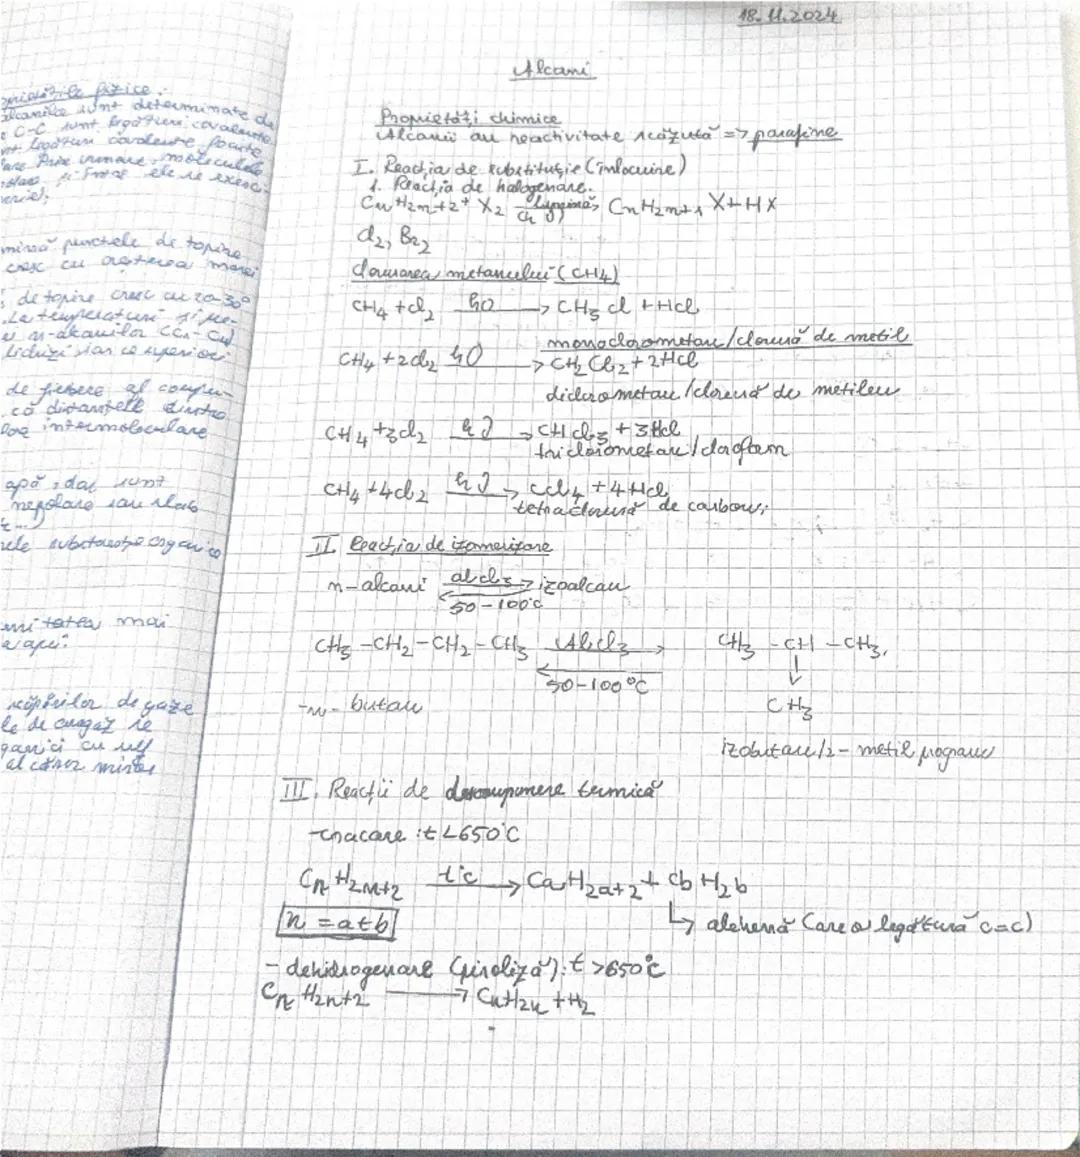 proprietățile fizice:
alcanilor sunt determinate de
C-C sunt legături covalente
legături covalente foarte
moleculele
ele se exerci-
punctele de topire
cresc cu creșterea masei
de topire cresc cu 20-30°
La temperaturi și pre-
n-alcanilor
lichizi iar cei superiori
de fierbere al
că distanțele dintre
intermoleculare
apă, dar sunt
nepolare sau slab
substanțe organice
mai
apei:
scăpărilor de gaze
le de aragaz se
ganici cu sulf
al căror miros
18.11.2024
Alcani
Proprietăți chimice
Alcanii au reactivitate scăzută => parafine
I. Reacția de substituție (înlocuire)
1. Reacția de halogenare.
CnH2n+2 + X2 lumină → CnH2n+1 X + HX
(h ν)
Cl2, Br2
clorurarea metanului (CH4)
CH4 + Cl2 hν → CH3 Cl + HCl
monoclorometan/clorură de metil
CH4 + 2Cl2 hν → CH2 Cl2 + 2HCl
diclorometan/clorură de metilen
CH4 + 3Cl2 hν → CH Cl3 + 3HCl
triclorometan/cloroform
CH4 + 4Cl2 hν → CCl4 + 4HCl
tetraclorură de carbon;
II Reacția de izomerizare
n-alcani AlCl3 ⇄ izoalcan
50-100°C
CH3 -CH2 -CH2 - CH3 AlCl3 ⇄ CH3 - CH - CH3,
50-100°C ↓
-n- butan CH3
izobutan/2- metil propan
III. Reacții de descompunere termică
-cracare : t < 650°C
CnH2n+2 t°C → CaH2a+2 + CbH2b
n = a+b ↳ alchenă (are o legătură C=C)
- dehidrogenare (piroliză): t > 650°C
CnH2n+2 → CnH2n + H2